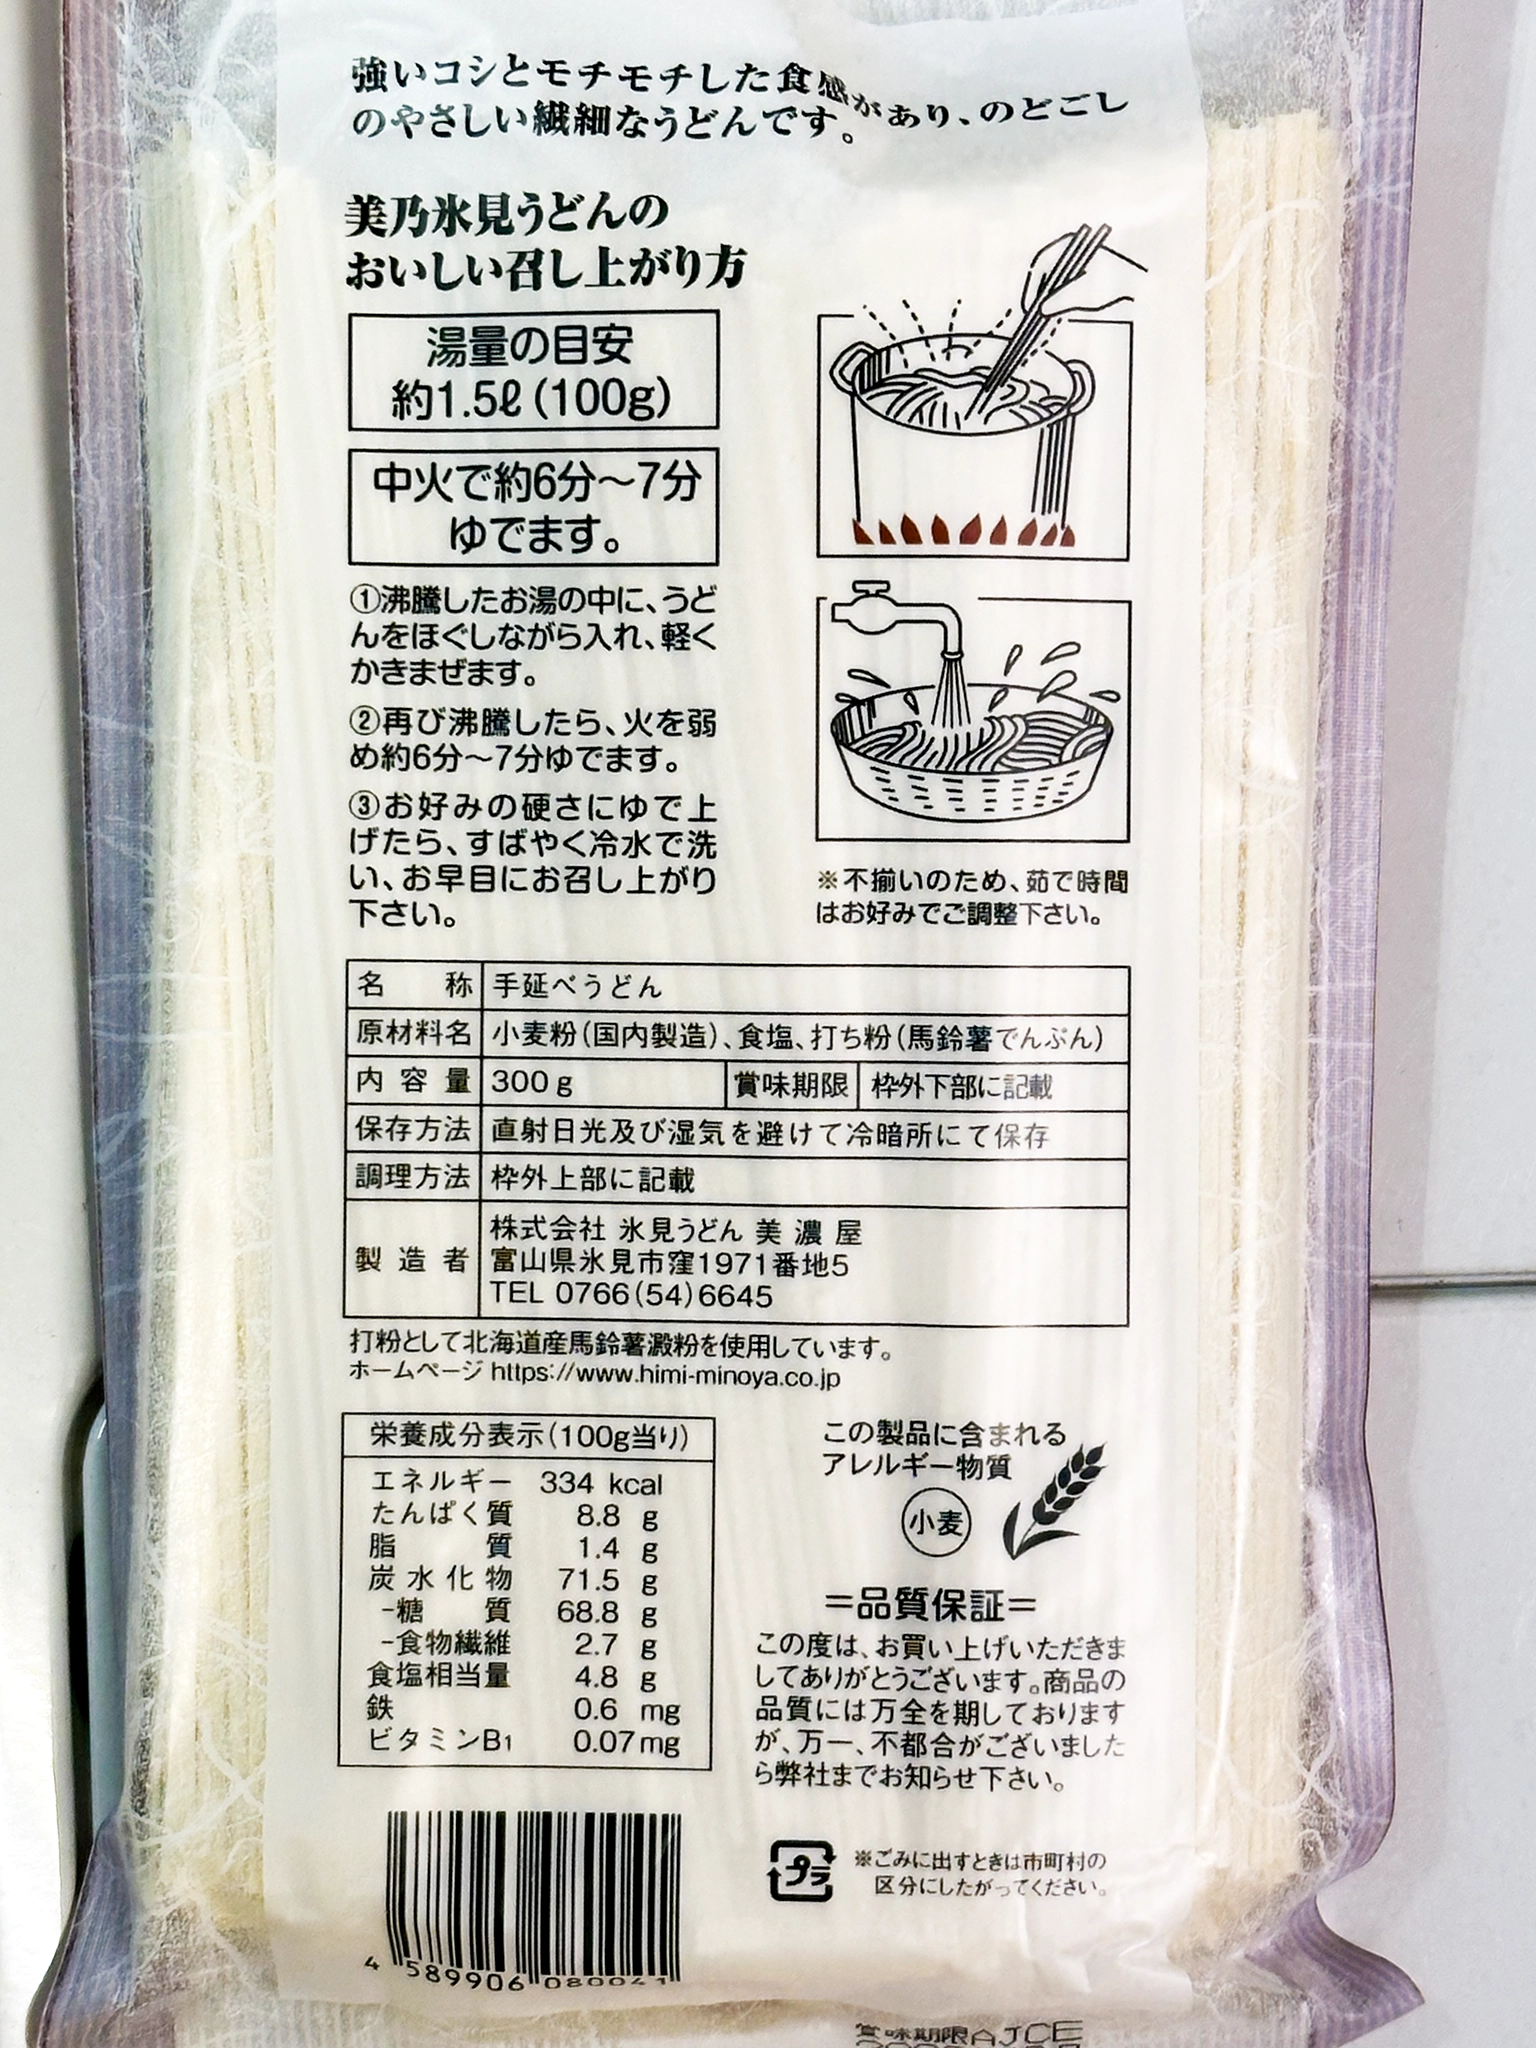 強いコシとモチモチした食感があり、のどごし
のやさしい繊細なうどんです。
美乃氷見うどんの
おいしい召し上がり方
湯量の目安
約1.5ℓ(100g)
中火で約6分〜7分
ゆでます。
①沸騰したお湯の中に、うど
んをほぐしながら入れ、軽く
かきまぜます。
②再び沸騰したら、火を弱
め約6分〜7分ゆでます。
③お好みの硬さにゆで上
げたら、すばやく冷水で洗
い、お早目にお召し上がり
下さい。
※不揃いのため、茹で時間
はお好みでご調整下さい。
名称 手延べうどん
原材料名 小麦粉(国内製造)、食塩、打ち粉(馬鈴薯でんぷん)
内容量 300g 賞味期限 枠外下部に記載
保存方法 直射日光及び湿気を避けて冷暗所にて保存
調理方法 枠外上部に記載
製造者 株式会社 氷見うどん 美濃屋
富山県氷見市窪1971番地5
TEL 0766(54)6645
打粉として北海道産馬鈴薯澱粉を使用しています。
ホームページ https://www.himi-minoya.co.jp
栄養成分表示(100g当り)
エネルギー 334 kcal
たんぱく質 8.8 g
脂質 1.4 g
炭水化物 71.5 g
-糖質 68.8 g
-食物繊維 2.7 g
食塩相当量 4.8 g
鉄 0.6 mg
ビタミンB1 0.07mg
この製品に含まれる
アレルギー物質
小麦
=品質保証=
この度は、お買い上げいただきま
してありがとうございます。商品の
品質には万全を期しております
が、万一、不都合がございました
ら弊社までお知らせ下さい。
プラ
※ごみに出すときは市町村の
区分にしたがってください。
4 589906 080041
賞味期限AJCE